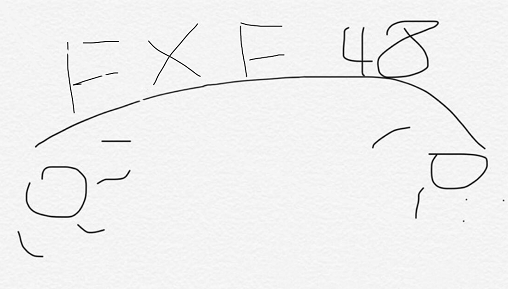 FXF 48